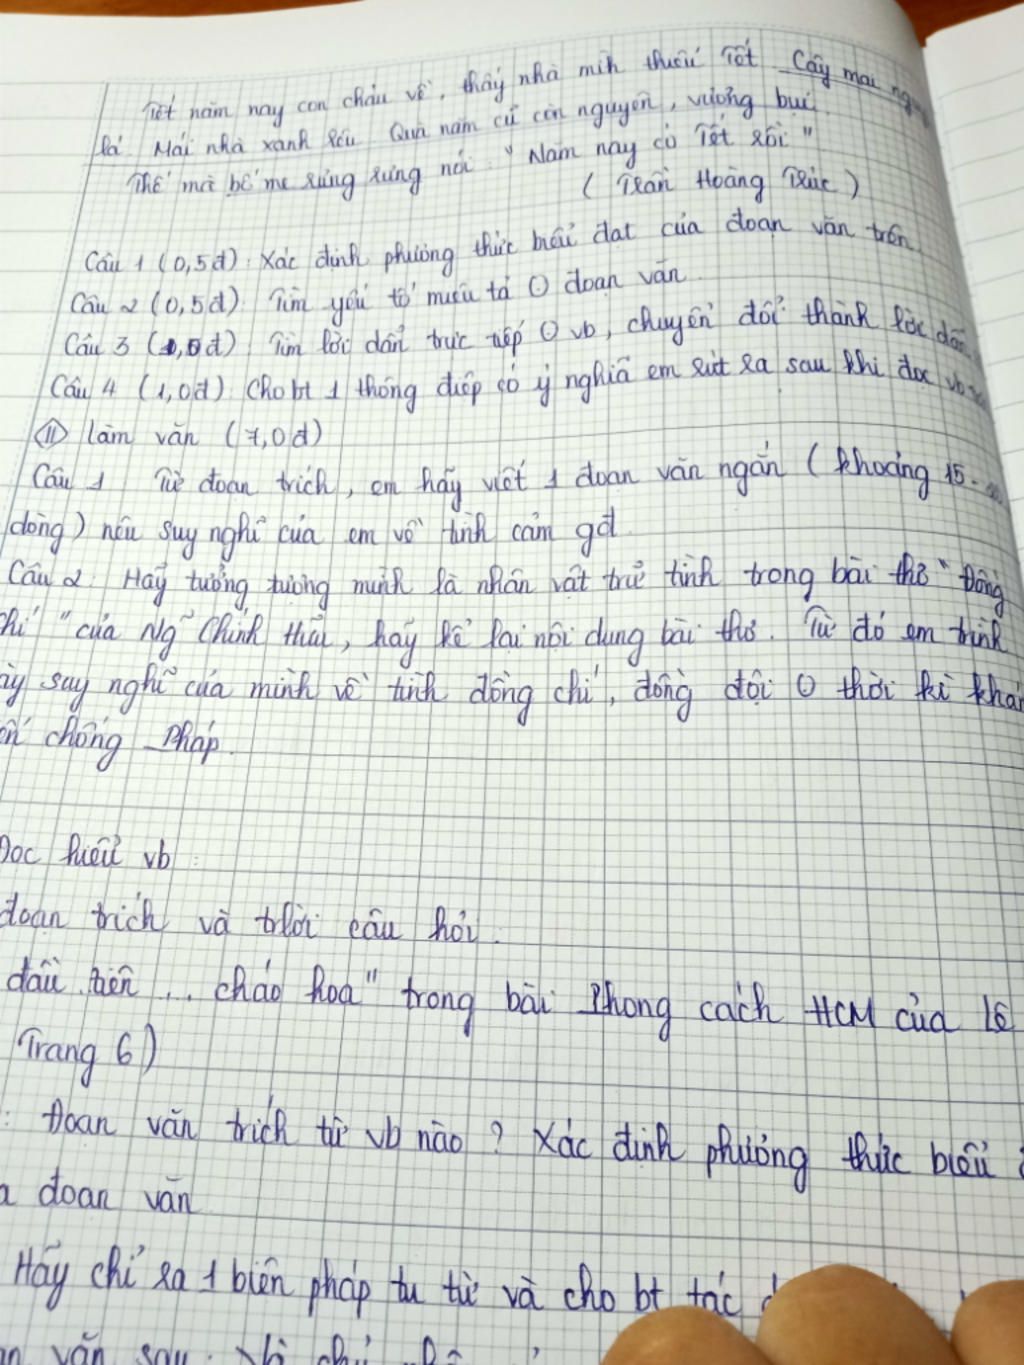 Tết năm nay con cháu về, thấy nhà mìh thiếu Tết. Cây mai
lá. Mái nhà xanh rêu. Quà năm cũ còn nguyên, vương bụi.
Thế mà bố mẹ rưng rưng nói: "Năm nay có Tết rồi"
( Trần Hoàng Trúc )
Câu 1 (0,5đ): Xác định phương thức biểu đạt của đoạn văn trên.
Câu 2 (0,5đ) Tìm yếu tố miêu tả ⊙ đoạn văn.
Câu 3 (1,0đ) Tìm lời dẫn trực tiếp ⊙ vb, chuyển đổi thành lời dẫn
Câu 4 (1,0đ) Cho bt 1 thông điệp có ý nghĩa em rút ra sau khi đọc vb
II làm văn (7,0đ)
Câu 1 Từ đoạn trích, em hãy viết 1 đoạn văn ngắn ( khoảng 15-
dòng) nêu suy nghĩ của em về tình cảm gđ.
Câu 2. Hãy tưởng tượng mình là nhân vật trữ tình trong bài thơ "Đồng
chí" của Ng~ Chính Hữu, hãy kể lại nội dung bài thơ. Từ đó em trình
ày suy nghĩ của mình về tình đồng chí, đồng đội ⊙ thời kì khán
ến chống Pháp.
Đọc hiểu vb :
đoạn trích và trlời câu hỏi.
đầu tiên ... cháo hoa" trong bài Phong cách HCM của Lê
Trang 6)
: Đoạn văn trích từ vb nào ? Xác định phương thức biểu
a đoạn văn
Hãy chỉ ra 1 biện pháp tu từ và cho bt tác
n văn sau: